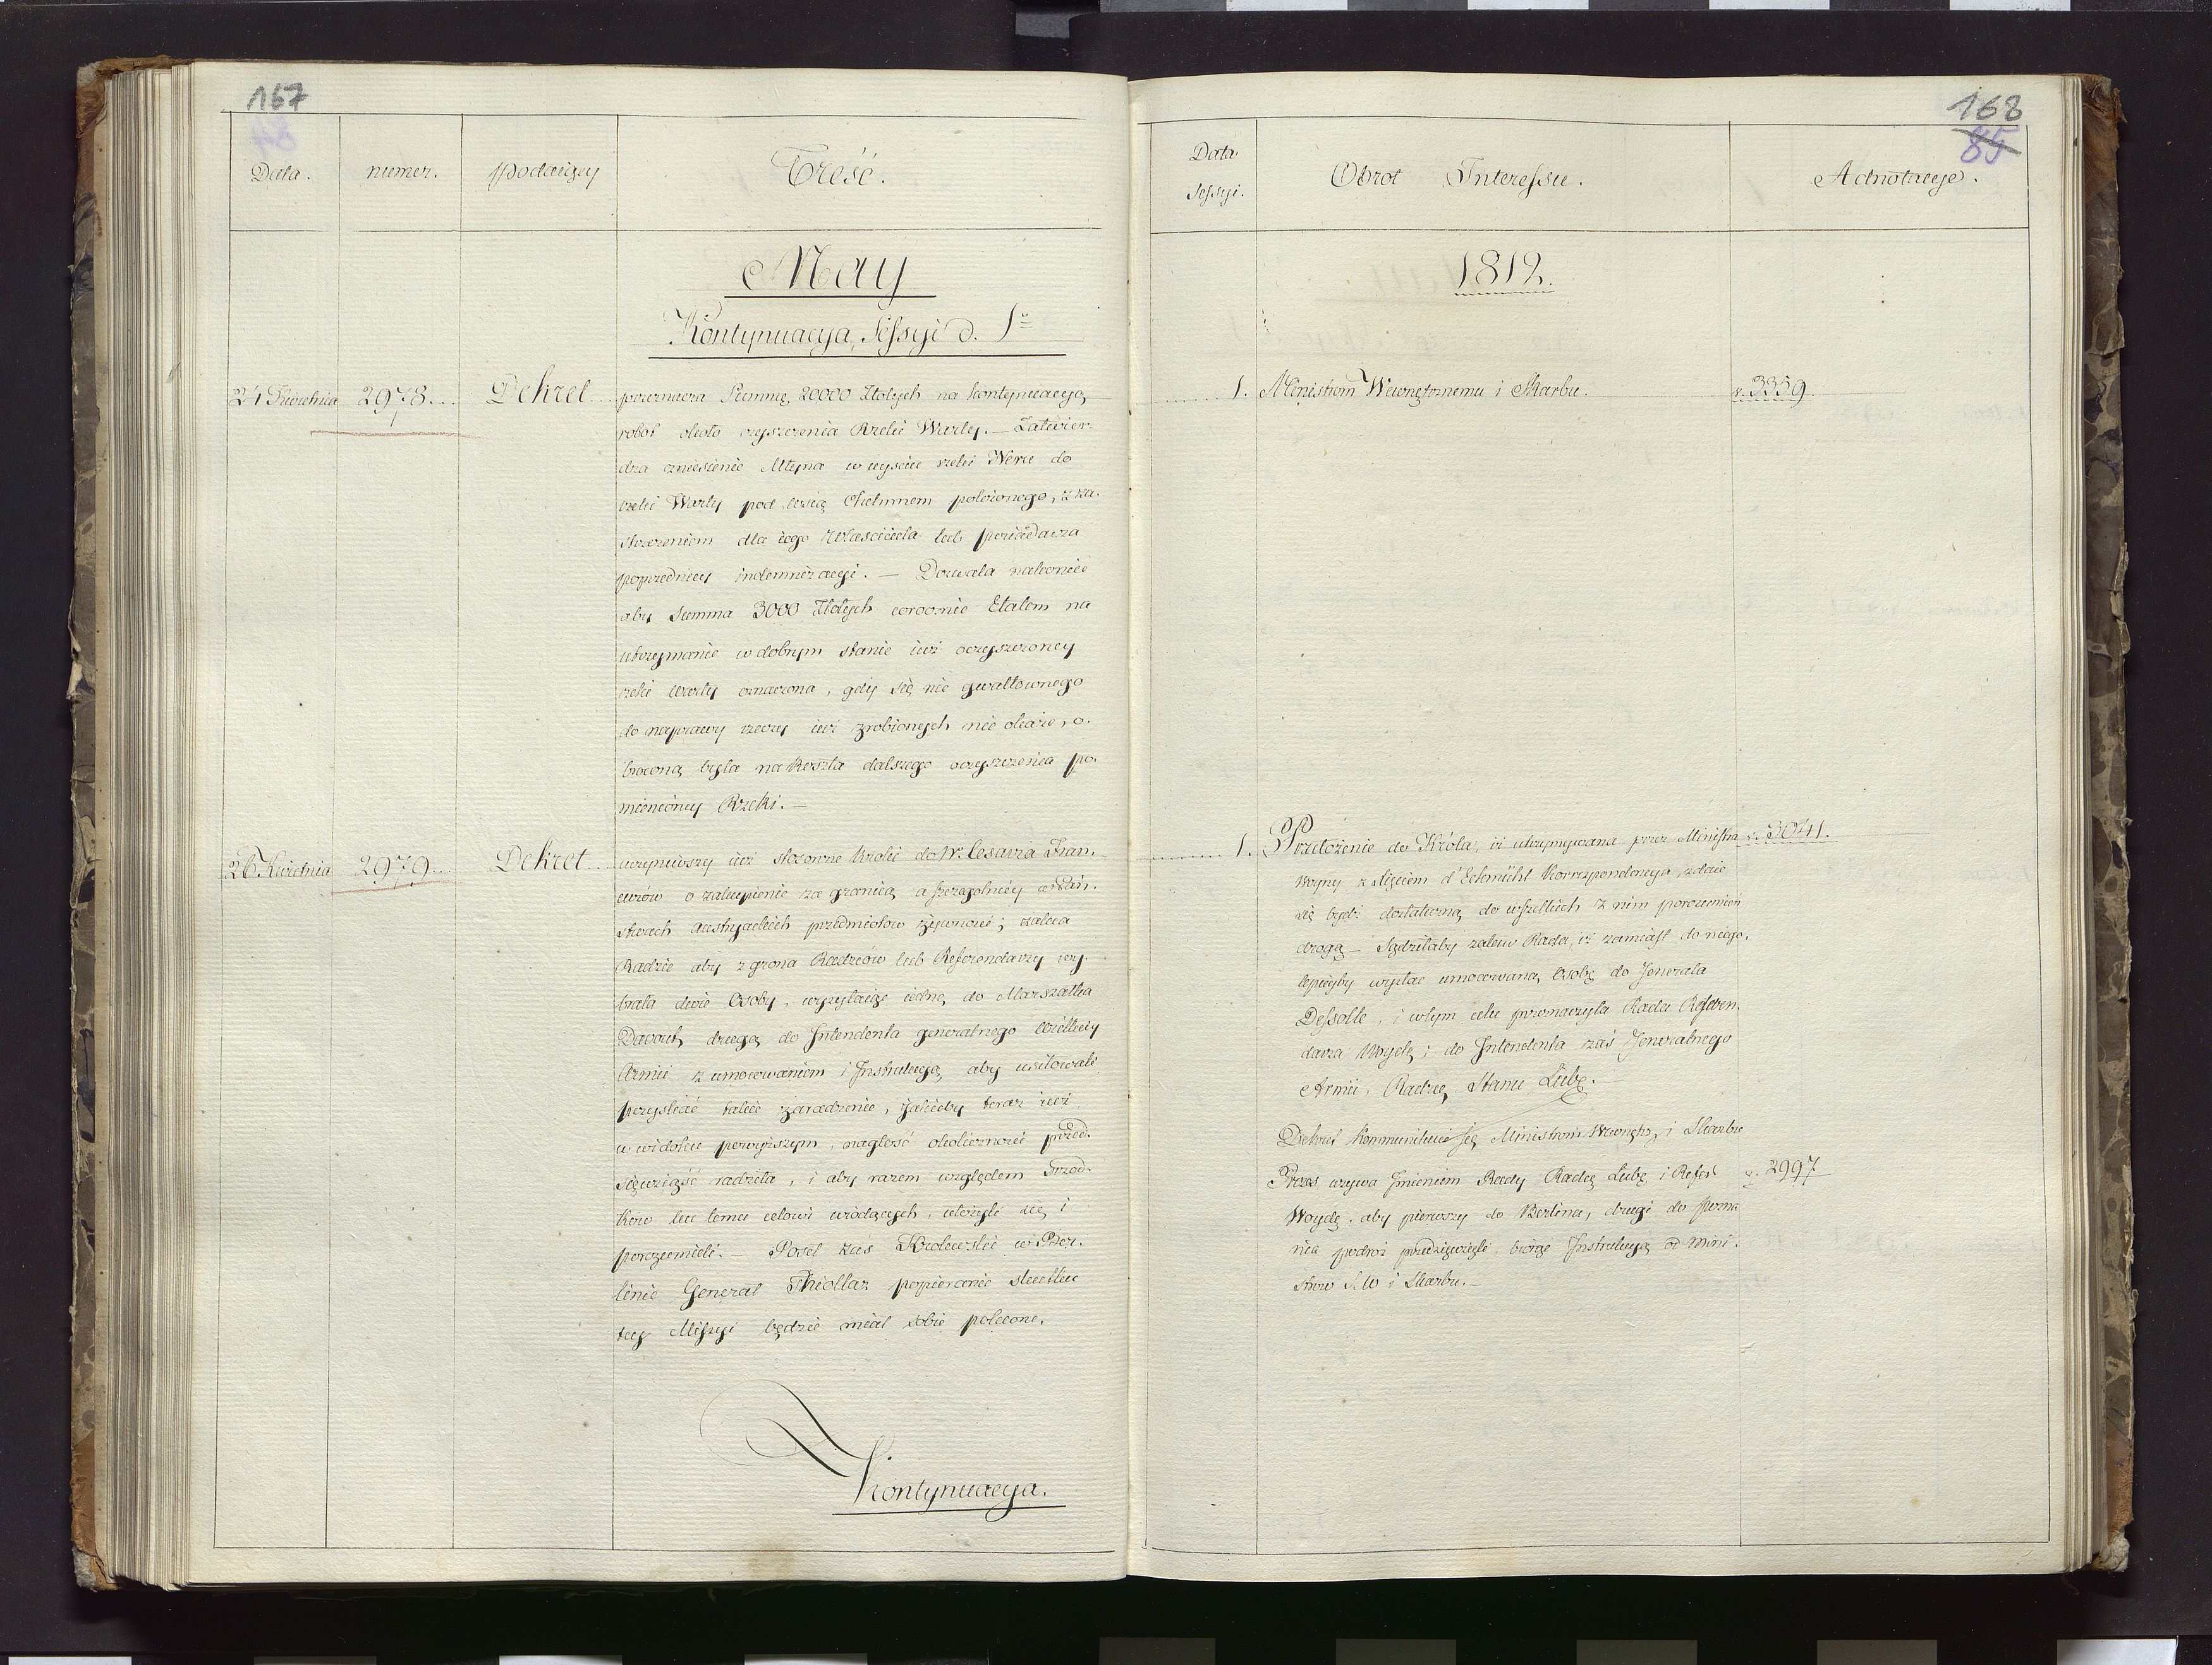 167
Data.
numer.
Podaiący
Treść.
May
Kontynuacya Sessyi d. 1º
24 Kwietnia 2978. Dekret
przeznacza Summę 20000 Złotych na kontynuacyą
robot około czyszczenia Rzeki Warty. — Zatwier-
dza zniesienie Młyna w uyściu rzeki Neru do
rzeki Warty pod wsią Chełmnem położonego, z za-
strzeżeniem dla iego Właściciela lub posiadacza
poprzedniey indemnizacyi. — Dozwala nakoniec
aby Summa 3000 Złotych corocznie Etatem na
utrzymanie w dobrym stanie iuż oczyszczoney
rzeki Warty oznaczona, gdy się nic gwałtownego
do naprawy rzeczy iuż zrobionych nie okaże, o-
broconą była na Koszta dalszego oczyszczenia po-
mienioney Rzeki. —
26 Kwietnia 2979. Dekret
uczyniwszy iuż stosowne kroki do W. Cesarza Fran-
cuzów o zakupienie za granicą a szczegolniey w Pań-
stwach Austryackich przedmiotow żywności; zaleca
Radzie aby z grona Radzców lub Referendarzy wy-
brała dwie Osoby, wysyłaiąc iedną do Marszałka
Davout, drugą do Intendenta generalnego wielkiey
Armii z umocowaniem i Instrukcyą, aby usiłowali
pozyskać takie zaradzenie, jakieby teraz iuż
w widoku powyższym, nagłość okoliczności przed-
sięwziąść radziła, i aby razem względem śrzod-
ków ku temu celowi wiodących, ułożyli się i
porozumieli. — Poseł zaś Krolewski w Ber-
linie Generał Thiollaz popieranie skutku
tey Missyi będzie miał sobie polecone.
Kontynuacya.
168
85
Data
Sessyi.
Obrot Interessu.
Adnotacye.
1812.
1. Ministrom Wewnętrznemu i Skarbu. v. 3359.
1. Przełożenie do Króla, iż utrzymywana przez Ministra v. 3041.
Woyny z Xięciem d'Eckmühl Korrespondencya, zdaie
się bydź dostateczną do wszelkich z nim porozumień
drogą — Sądziłaby zatem Rada, iż zamiast do niego,
lepieyby wysłać umocowaną Osobę do Jenerała
Dessolle, i w tym celu przeznaczyła Rada Referen-
darza Woydę; do Intendenta zaś Jeneralnego
Armii, Radzcę Stanu Lubę. —
Dekret kommunikuie się Ministrom Wewnętr. i Skarbu
Prezes wzywa Imieniem Rady Radcę Lubę i Refer. v. 2997
Woydę, aby pierwszy do Berlina, drugi do Pozna
nia podroż przedsięwzięli, biorąc Instrukcyą od Mini-
strow S. W i Skarbu. —